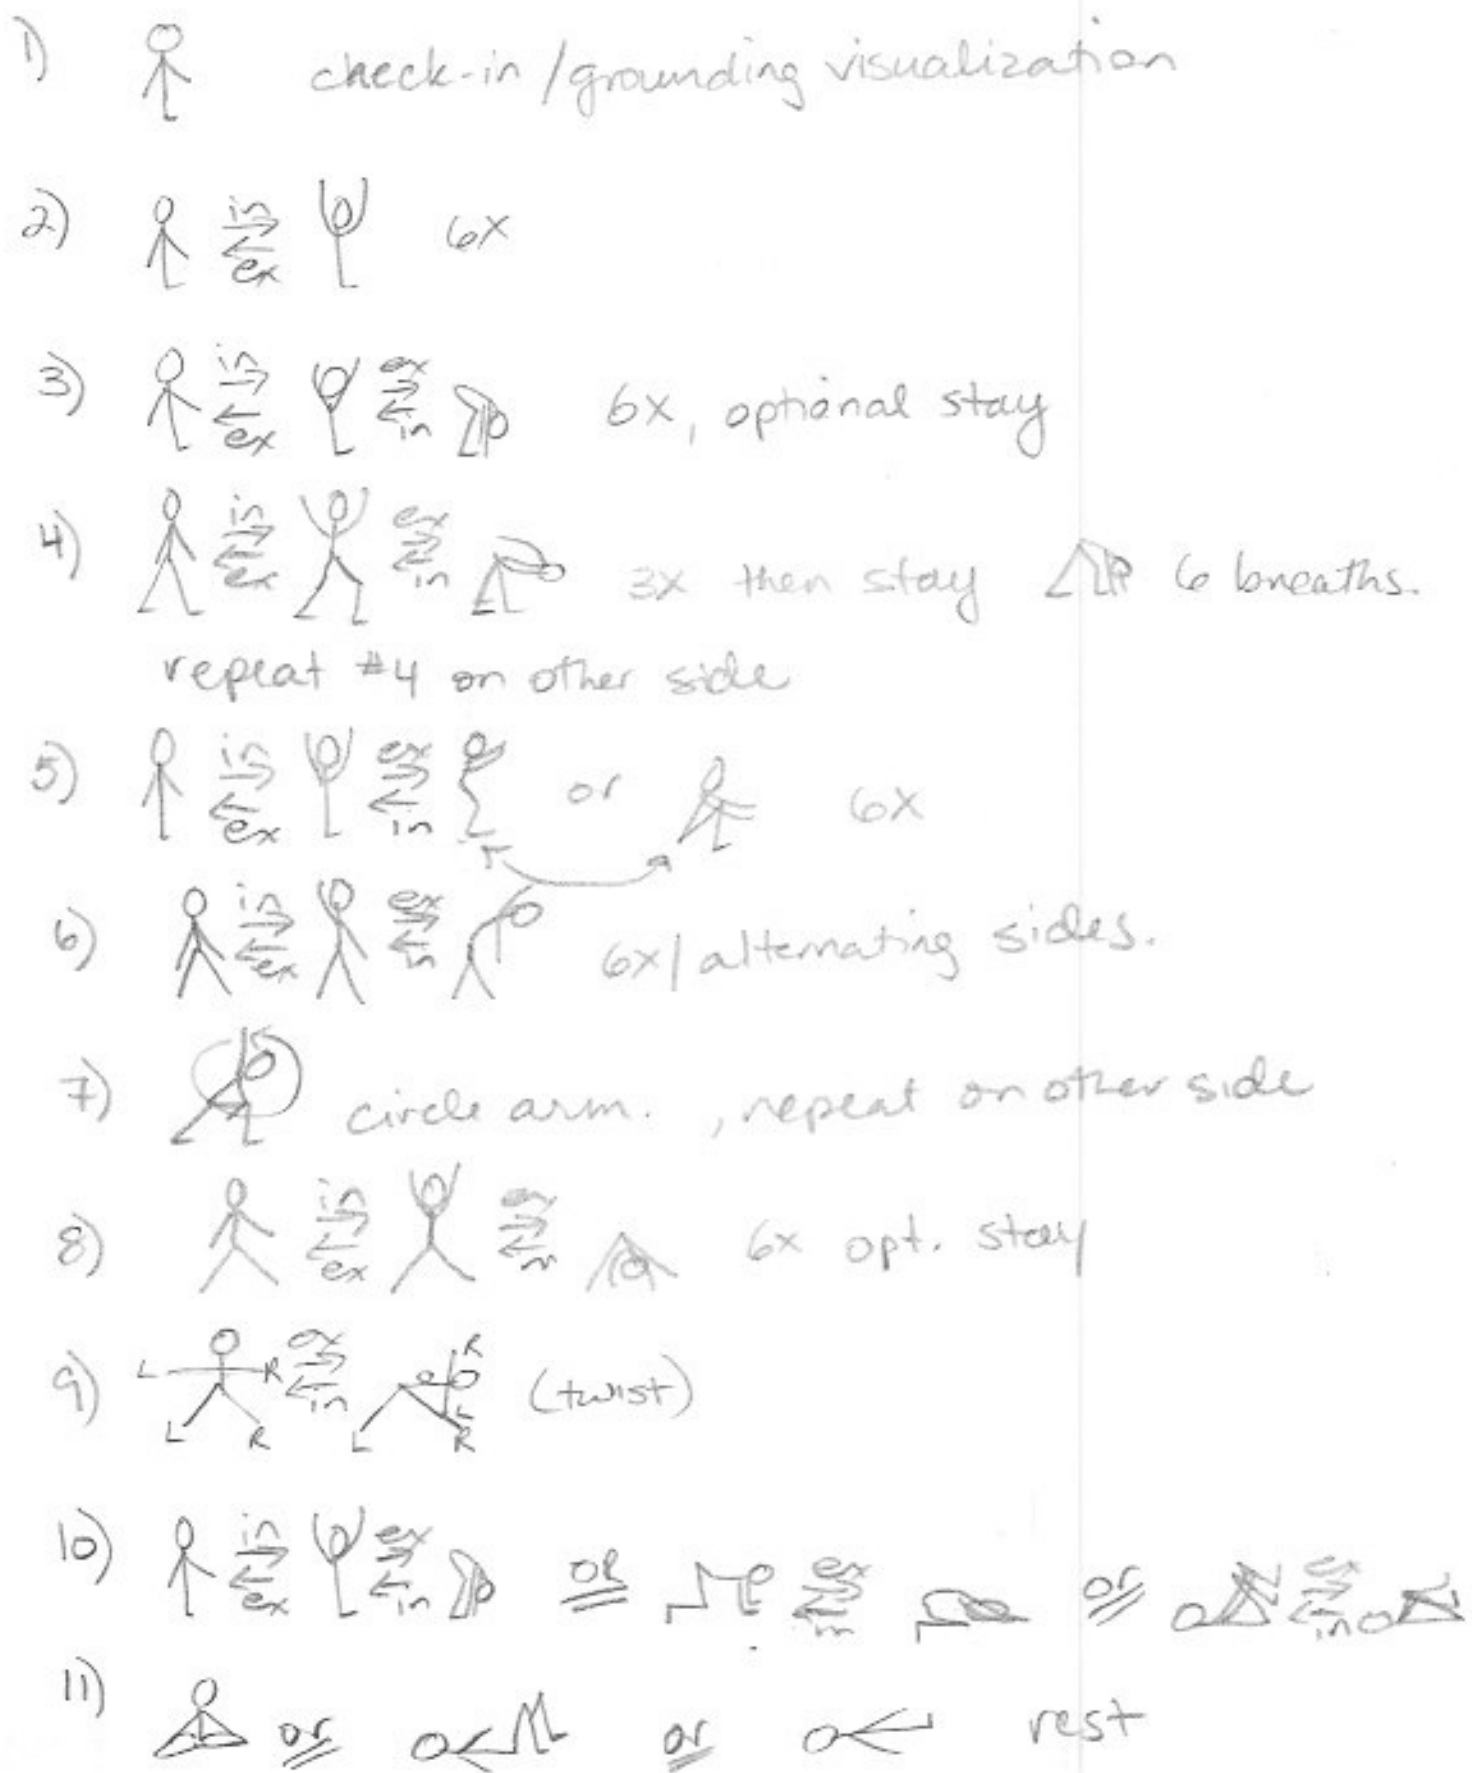 1) check-in / grounding visualization
2) in ex 6x
3) in ex ex in 6x, optional stay
4) in ex ex in 3x then stay 6 breaths.
repeat #4 on other side
5) in ex ex in or 6x
6) in ex ex in 6x/alternating sides.
7) circle arm. , repeat on other side
8) in ex ex in 6x opt. stay
9) L R L R ex in L R L R (twist)
10) in ex ex in OR ex in or ex in
11) or or rest